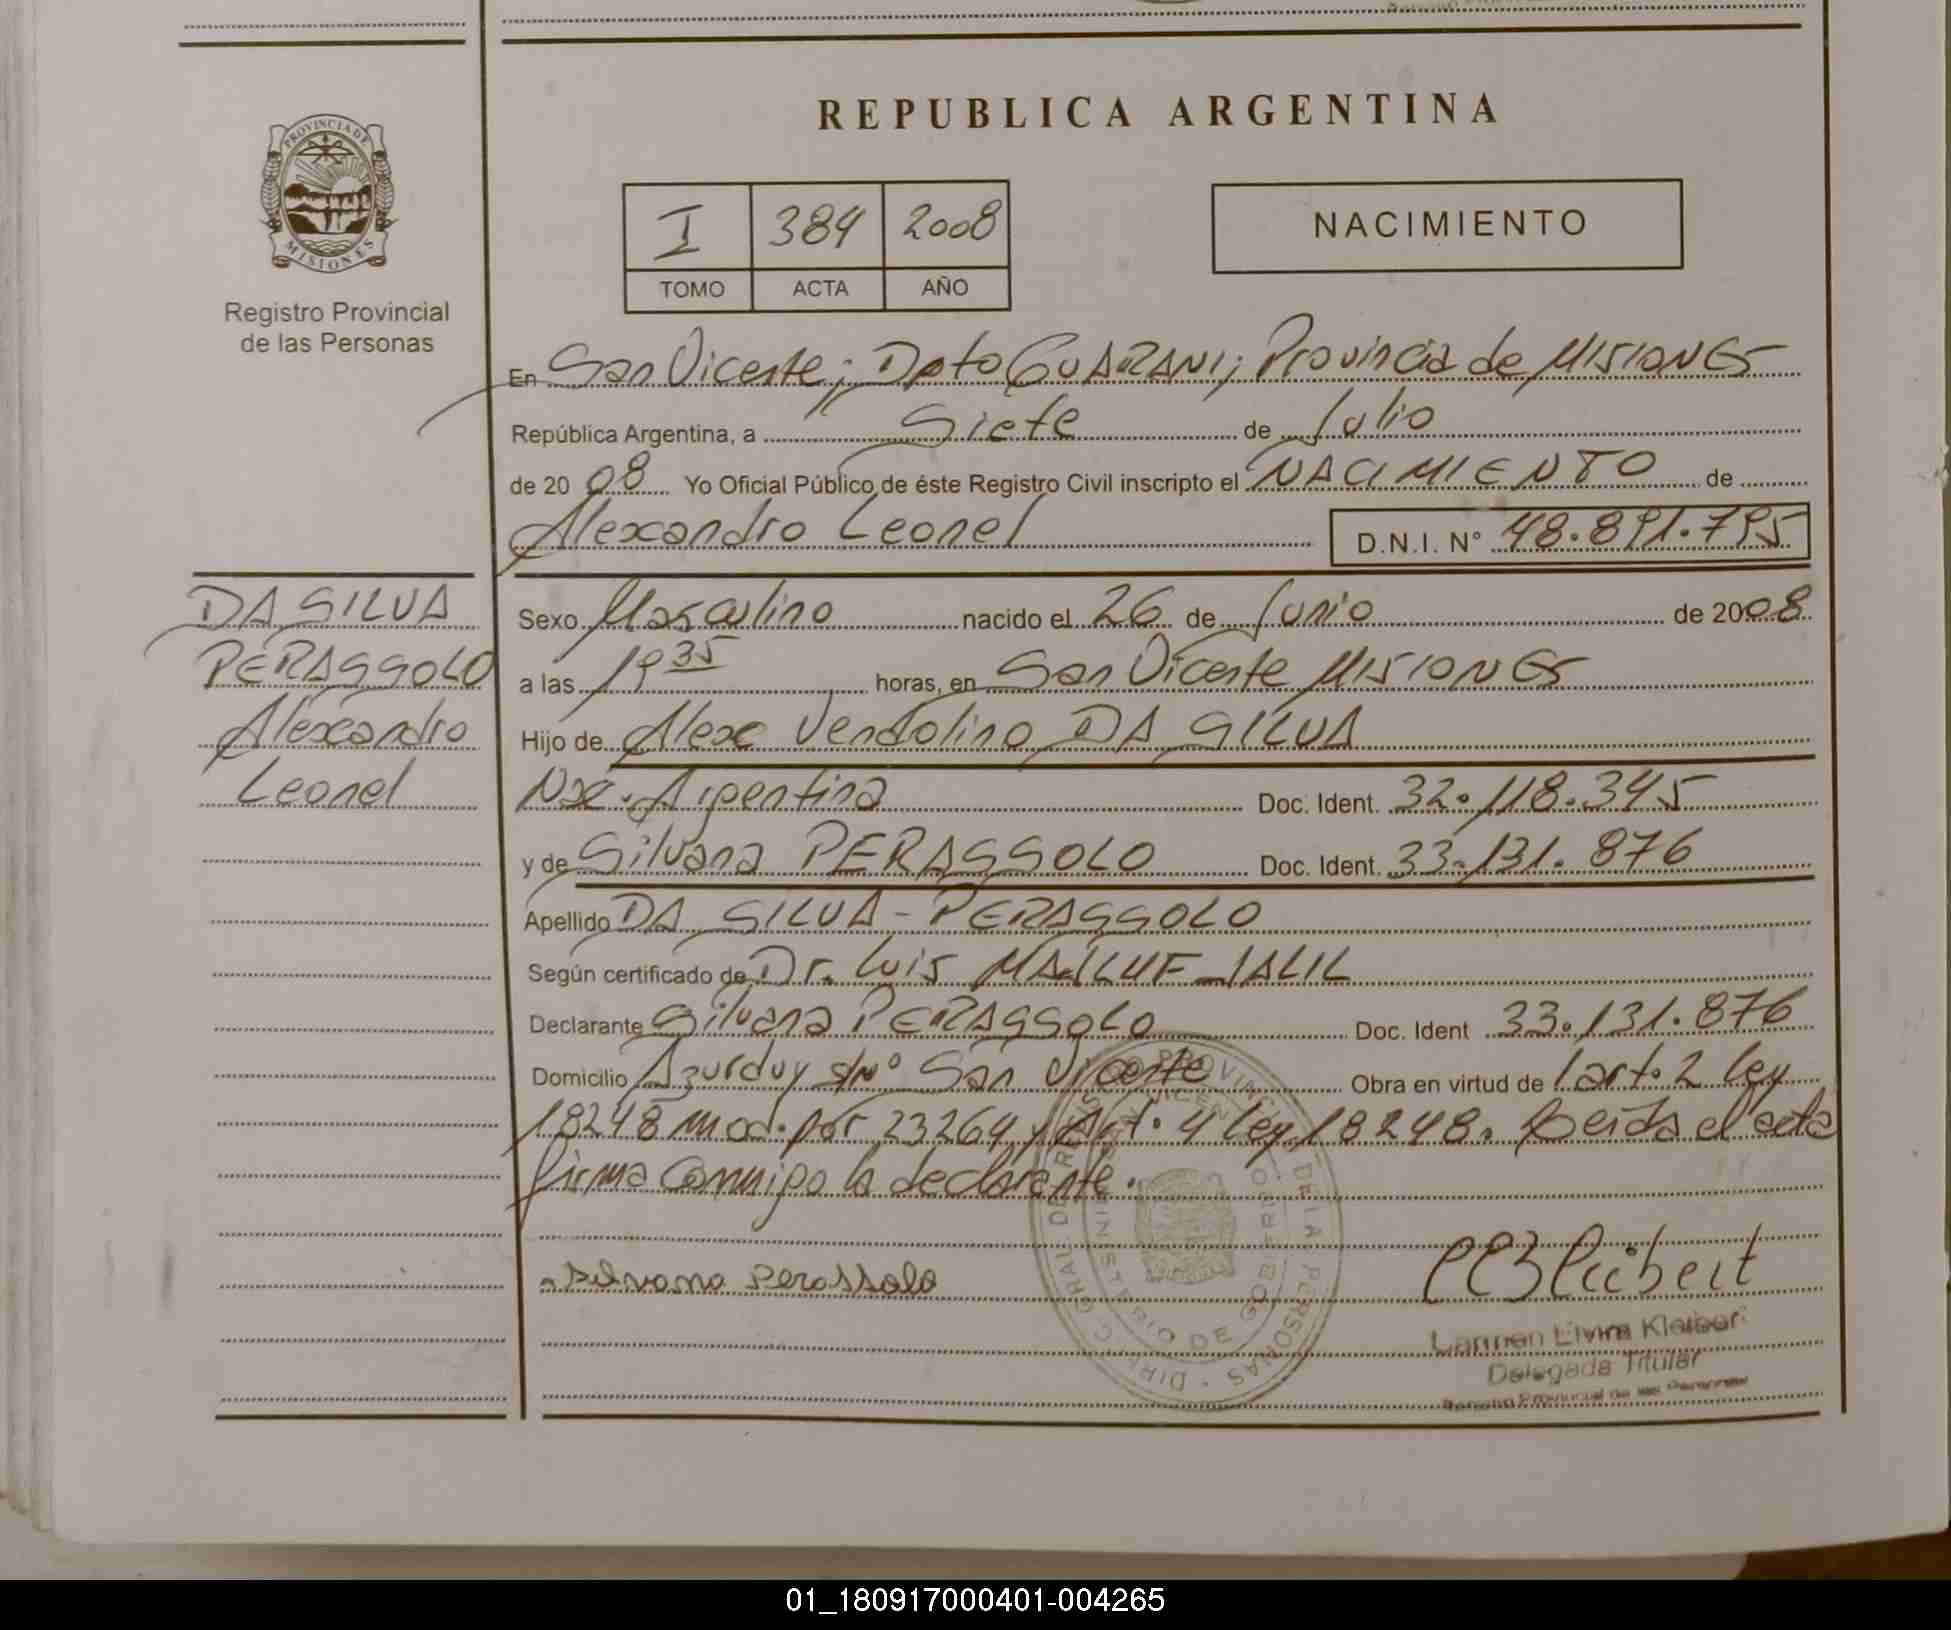 REPUBLICA ARGENTINA
PROVINCIA DE
MISIONES
Registro Provincial
de las Personas
I 384 2008
TOMO ACTA AÑO
NACIMIENTO
En San Vicente; Dpto GUARANI; Provincia de MISIONES
República Argentina, a Siete de Julio
de 2008 Yo Oficial Público de éste Registro Civil inscripto el NACIMIENTO de
Alexandro Leonel D.N.I. N° 48.891.795
DA SILVA
PERASSOLO
Alexandro
Leonel
Sexo Masculino nacido el 26 de Junio de 2008
a las 19 35 horas, en San Vicente MISIONES
Hijo de Alexe Vendolino DA SILVA
Nac. Argentina Doc. Ident. 32.118.345
y de Silvana PERASSOLO Doc. Ident. 33.131.876
Apellido DA SILVA - PERASSOLO
Según certificado de Dr. Luis JALIL
Declarante Silvana PERASSOLO Doc. Ident 33.131.876
Domicilio Azurduy s/n° San Vicente Obra en virtud de art. 2 ley
18248 mod. por 23264 y Art. 4 ley 18248. Leida el acta
firma conmigo la declarante.
Silvana Perassolo
Carmen Elvira
Delegada Titular
Registro Provincial de las Personas
01_180917000401-004265